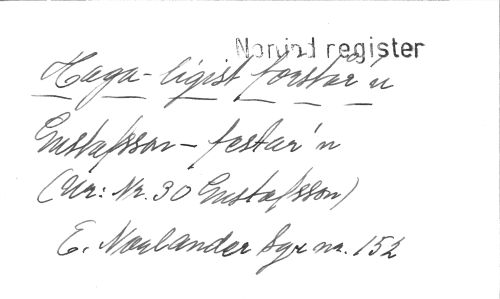 Norind register
Haga-ligist forstär'n
Gustafsson - festar'n
(Ur: Nr. 30 Gustafsson)
E. Norlander Sgr nr. 152